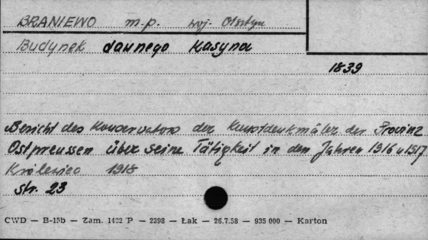 BRANIEWO m.p. woj. Olsztyn
Budynek dawnego Kasyna
1839
Bericht des Konservators der Kunstdenkmäler der Provinz
Ostpreussen über seine Tätigkeit in den Jahren 1916 u 1917
Królewiec 1918
str. 23
CWD — B-15b — Zam. 1402 P — 2398 — Łak — 26.7.58 — 935 000 — Karton